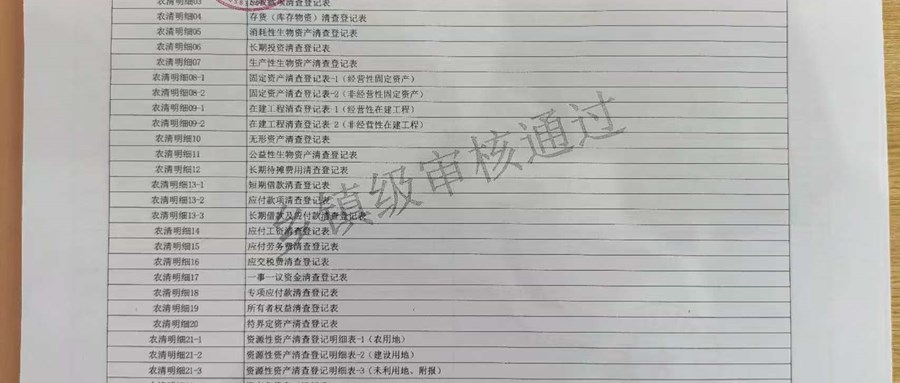 农清明细03 应收款项清查登记表
农清明细04 存货（库存物资）清查登记表
农清明细05 消耗性生物资产清查登记表
农清明细06 长期投资清查登记表
农清明细07 生产性生物资产清查登记表
农清明细08-1 固定资产清查登记表-1（经营性固定资产）
农清明细08-2 固定资产清查登记表-2（非经营性固定资产）
农清明细09-1 在建工程清查登记表-1（经营性在建工程）
农清明细09-2 在建工程清查登记表-2（非经营性在建工程）
农清明细10 无形资产清查登记表
农清明细11 公益性生物资产清查登记表
农清明细12 长期待摊费用清查登记表
农清明细13-1 短期借款清查登记表
农清明细13-2 应付款项清查登记表
农清明细13-3 长期借款及应付款清查登记表
农清明细14 应付工资清查登记表
农清明细15 应付劳务费清查登记表
农清明细16 应交税费清查登记表
农清明细17 一事一议资金清查登记表
农清明细18 专项应付款清查登记表
农清明细19 所有者权益清查登记表
农清明细20 待界定资产清查登记表
农清明细21-1 资源性资产清查登记明细表-1（农用地）
农清明细21-2 资源性资产清查登记明细表-2（建设用地）
农清明细21-3 资源性资产清查登记明细表-3（未利用地、附报）
乡镇级审核通过